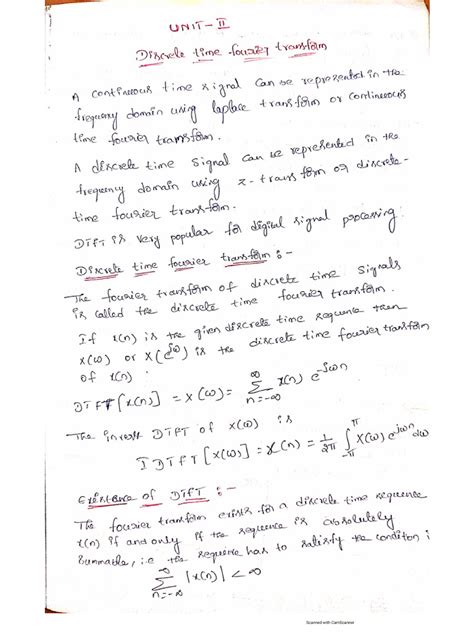 UNIT-II
Discrete time fourier transform
A continuous time signal can be represented in the
frequency domain using laplace transform or continuous
time fourier transform.
A discrete time signal can be represented in the
frequency domain using z-transform or discrete-
time fourier transform.
DTFT is very popular for digital signal processing
Discrete time fourier transform :-
The fourier transform of discrete time signals
is called the discrete time fourier transform.
If x(n) is the given discrete time sequence then
X(ω) or X(e^jω) is the discrete time fourier transform
of x(n).
DTFT[x(n)] = X(ω) = ∑_{n=-∞}^{∞} x(n) e^{-jωn}
The inverse DTFT of X(ω) is
IDTFT[X(ω)] = x(n) = 1/2π ∫_{-π}^{π} X(ω) e^{jωn} dω
Existence of DTFT :-
The fourier transform exists for a discrete time sequence
x(n) if and only if the sequence is absolutely
summable, i.e the sequence has to satisfy the condition :
∑_{n=-∞}^{∞} |x(n)| < ∞
Scanned with CamScanner